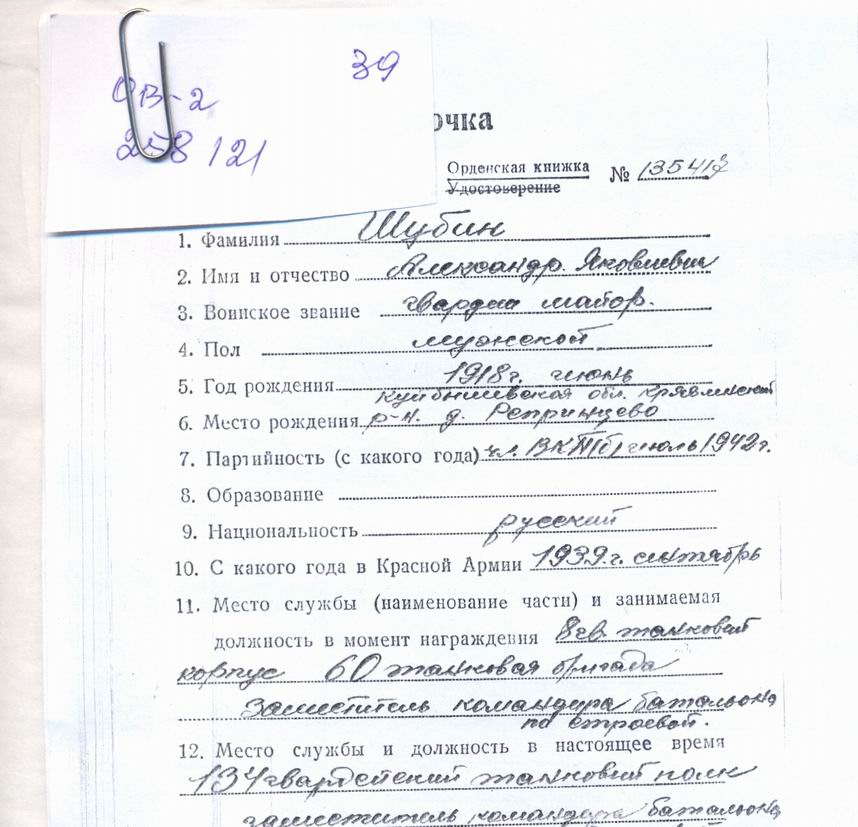 39
ОВ-2
258 121
очка
Орденская книжка
Удостоверение
№ 135417
1. Фамилия Шубин
2. Имя и отчество Александр Яковлевич
3. Воинское звание гвардии майор.
4. Пол мужской
5. Год рождения 1918 г. июнь
Куйбышевская обл.
6. Место рождения р-н. д. Репринцево
7. Партийность (с какого года) чл. ВКП(б) июль 1942 г.
8. Образование
9. Национальность русский
10. С какого года в Красной Армии 1939 г. сентябрь
11. Место службы (наименование части) и занимаемая
должность в момент награждения 8 гв. танковый
корпус 60 танковая бригада
Заместитель командира батальона
по строевой.
12. Место службы и должность в настоящее время
134 гвардейский танковый полк
заместитель командира батальона